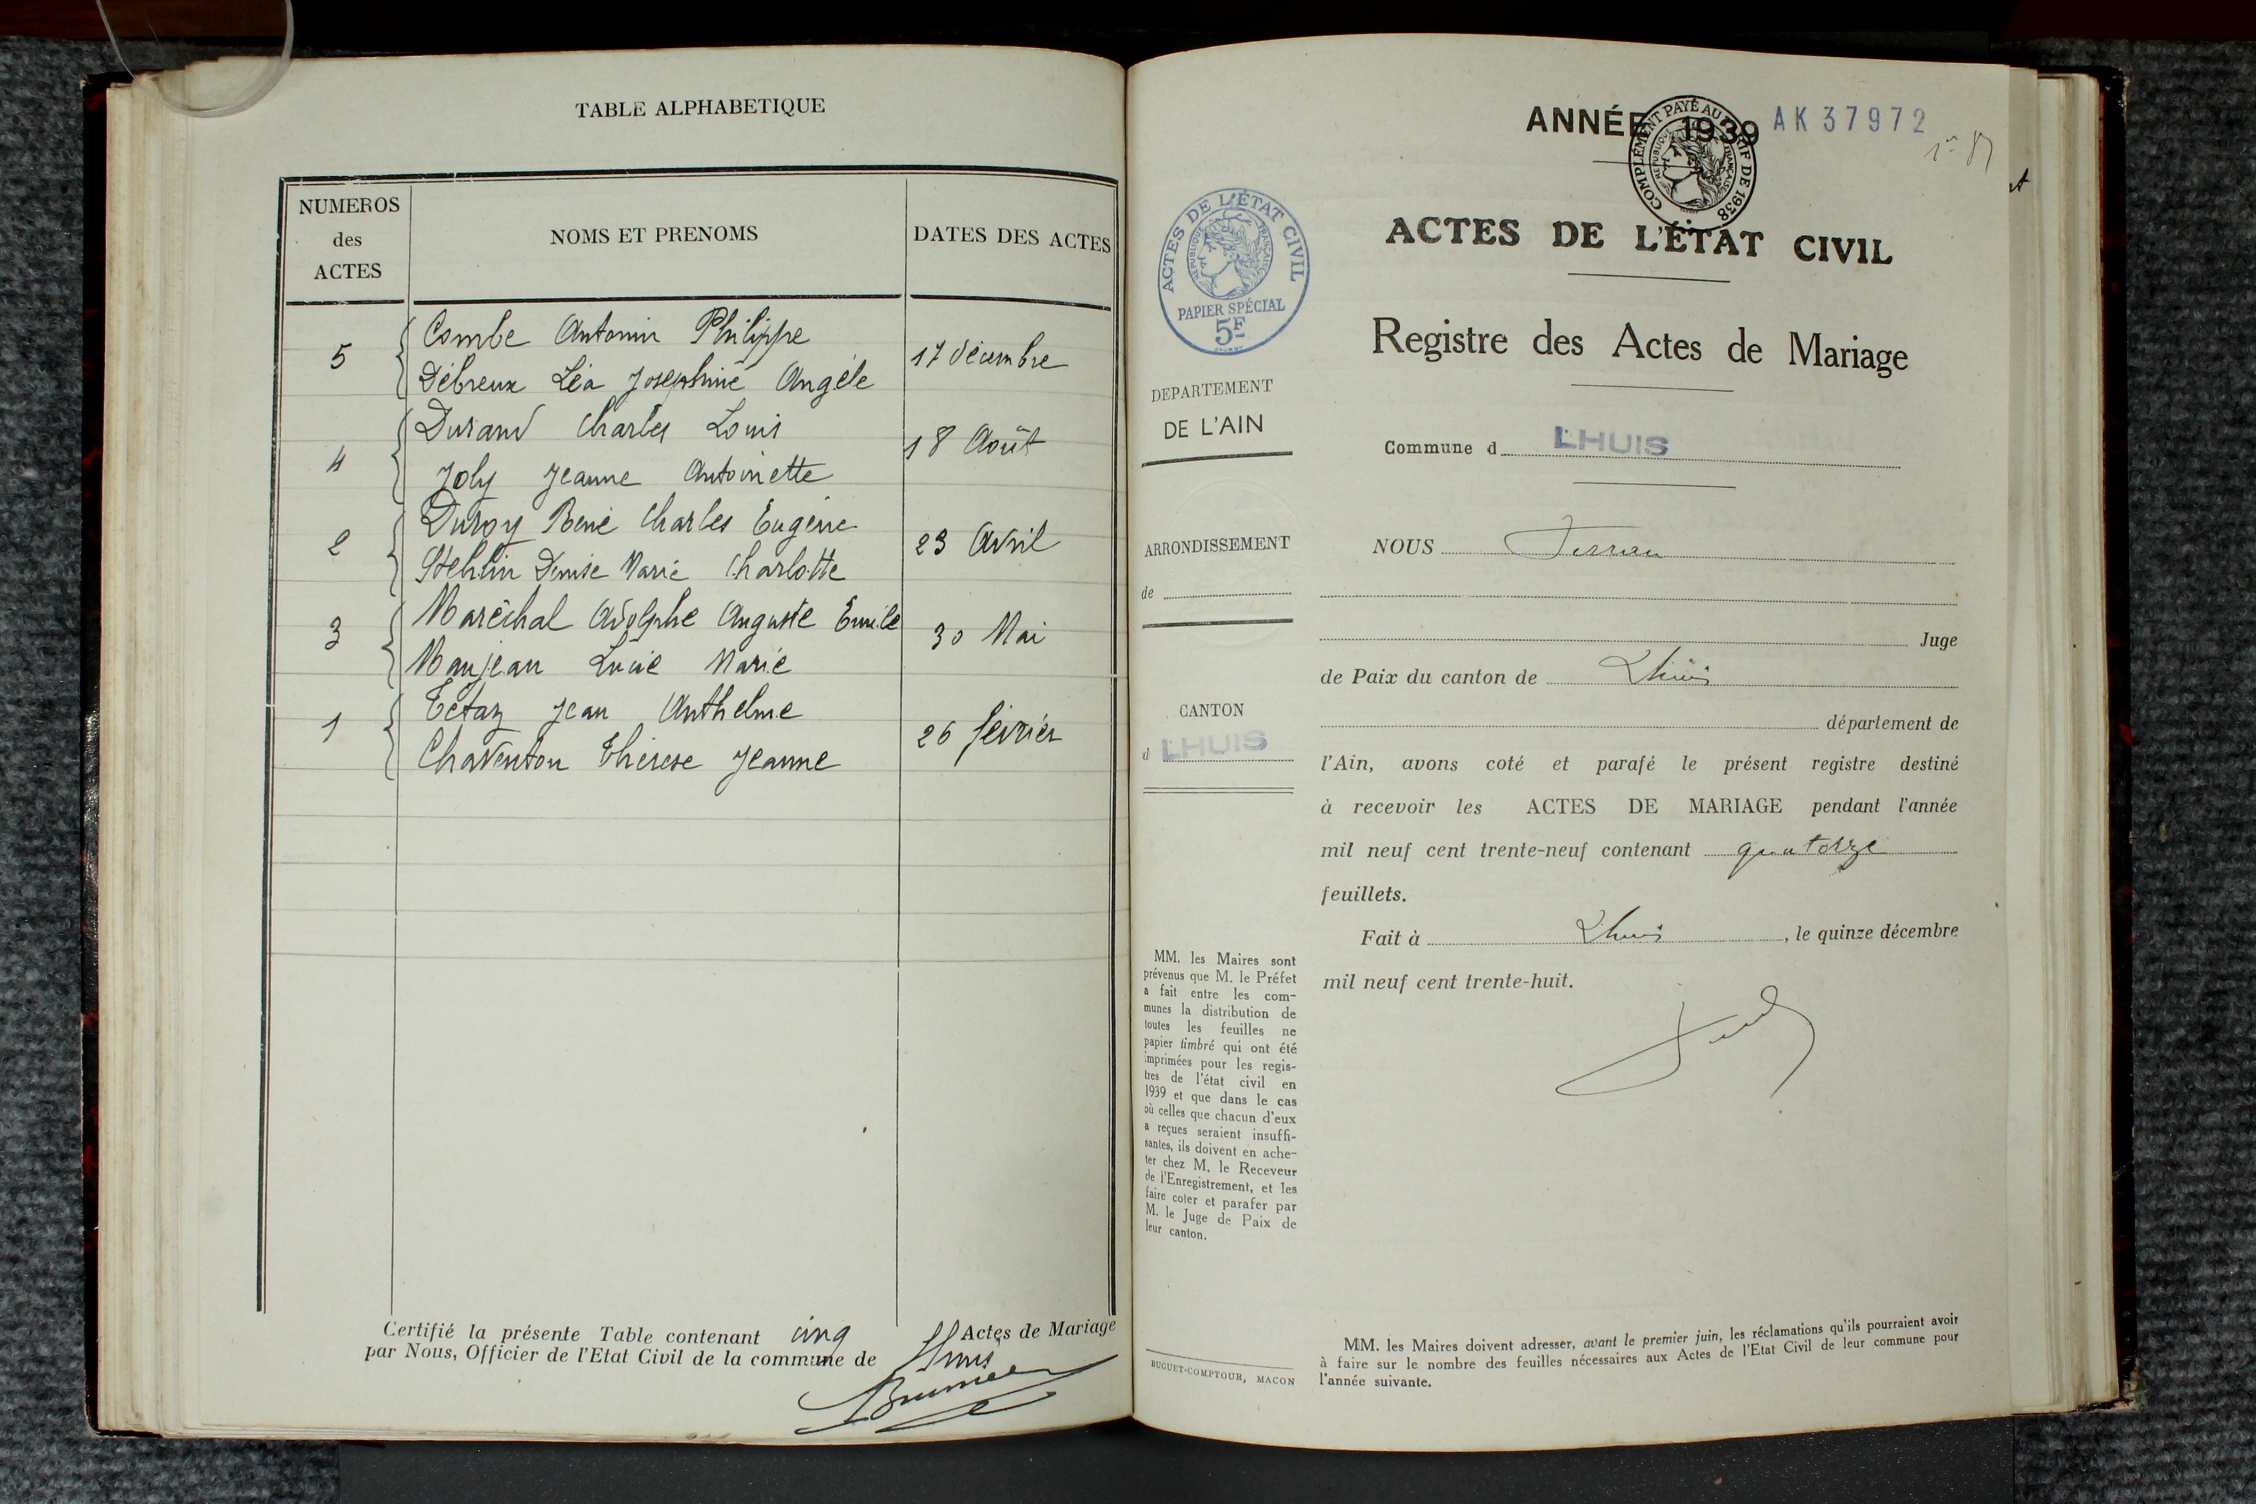 TABLE ALPHABETIQUE
NUMEROS
des
ACTES
NOMS ET PRENOMS
DATES DES ACTES
5
Combe Antonin Philippe
Débreux Léa Joséphine Angèle
17 décembre
4
Durand Charles Louis
Joly Jeanne Antoinette
18 Août
2
Duroy René Charles Eugène
Stehlin Denise Marie Charlotte
23 Avril
3
Maréchal Adolphe Auguste Emile
Manjean Lucie Marie
30 Mai
1
Tétaz Jean Anthelme
Chaventon Thérèse Jeanne
26 février
Certifié la présente Table contenant cinq Actes de Mariage
par Nous, Officier de l'Etat Civil de la commune de Lhuis
ANNÉE 1939
AK37972
COMPLÉMENT PAYÉ AU TARIF DE 1938
REPUBLIQUE FRANÇAISE
ACTES DE L'ÉTAT CIVIL
REPUBLIQUE FRANÇAISE
PAPIER SPÉCIAL
5F
DEPARTEMENT
DE L'AIN
ARRONDISSEMENT
de
CANTON
d LHUIS
MM. les Maires sont
prévenus que M. le Préfet
a fait entre les com-
munes la distribution de
toutes les feuilles ne
papier timbré qui ont été
imprimées pour les regis-
tres de l'état civil en
1939 et que dans le cas
où celles que chacun d'eux
a reçues seraient insuffi-
santes, ils doivent en ache-
ter chez M. le Receveur
de l'Enregistrement, et les
faire coter et parafer par
M. le Juge de Paix de
leur canton.
BUGUET-COMPTOUR, MACON
ACTES DE L'ÉTAT CIVIL
Registre des Actes de Mariage
Commune d LHUIS
NOUS
Juge
de Paix du canton de Lhuis
département de
l'Ain, avons coté et parafé le présent registre destiné
à recevoir les ACTES DE MARIAGE pendant l'année
mil neuf cent trente-neuf contenant quatorze
feuillets.
Fait à Lhuis, le quinze décembre
mil neuf cent trente-huit.
MM. les Maires doivent adresser, avant le premier juin, les réclamations qu'ils pourraient avoir
à faire sur le nombre des feuilles nécessaires aux Actes de l'Etat Civil de leur commune pour
l'année suivante.